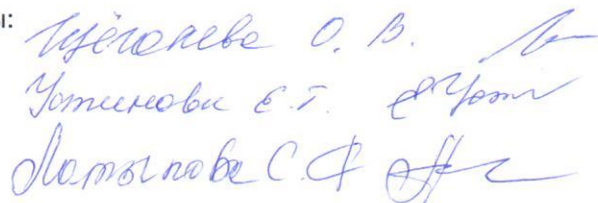 ы:
Щёголева О. В.
Устинова Е. Г.
Латыпова С. Ф.